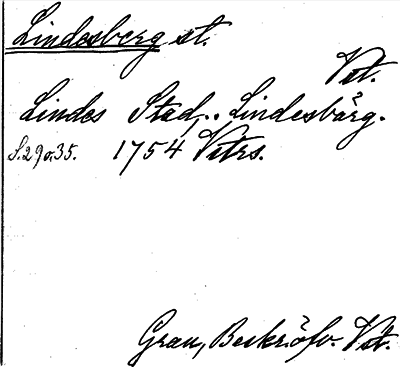 Lindesberg st.
Vst.
Lindes Stad,.. Lindesbärg.
S.29o.35. 1754 Vitrs.
Grau, Beskr.öfv. Vst.